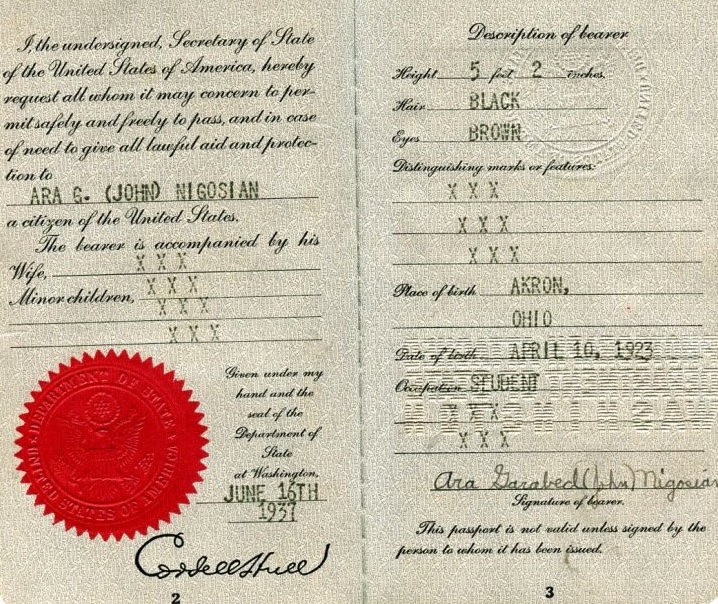 I, the undersigned, Secretary of State
of the United States of America, hereby
request all whom it may concern to per-
mit safely and freely to pass, and in case
of need to give all lawful aid and protec-
tion to
ARA G. (JOHN) NIGOSIAN
a citizen of the United States.
The bearer is accompanied by his
Wife, X X X
Minor children, X X X
X X X
X X X
DEPARTMENT OF STATE
UNITED STATES OF AMERICA
Given under my
hand and the
seal of the
Department of
State
at Washington,
JUNE 16TH
1937
Cordell Hull
2
Description of bearer
Height 5 feet 2 inches.
Hair BLACK
Eyes BROWN
Distinguishing marks or features:
X X X
X X X
X X X
Place of birth AKRON,
OHIO
Date of birth APRIL 10, 1923
Occupation STUDENT
X X X
X X X
Ara Garabed (John) Nigosian
Signature of bearer.
This passport is not valid unless signed by the
person to whom it has been issued.
3